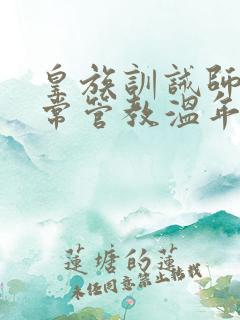 皇族訓誡師
常管教溫年
蓮塘的蓮
未經同意禁止轉載